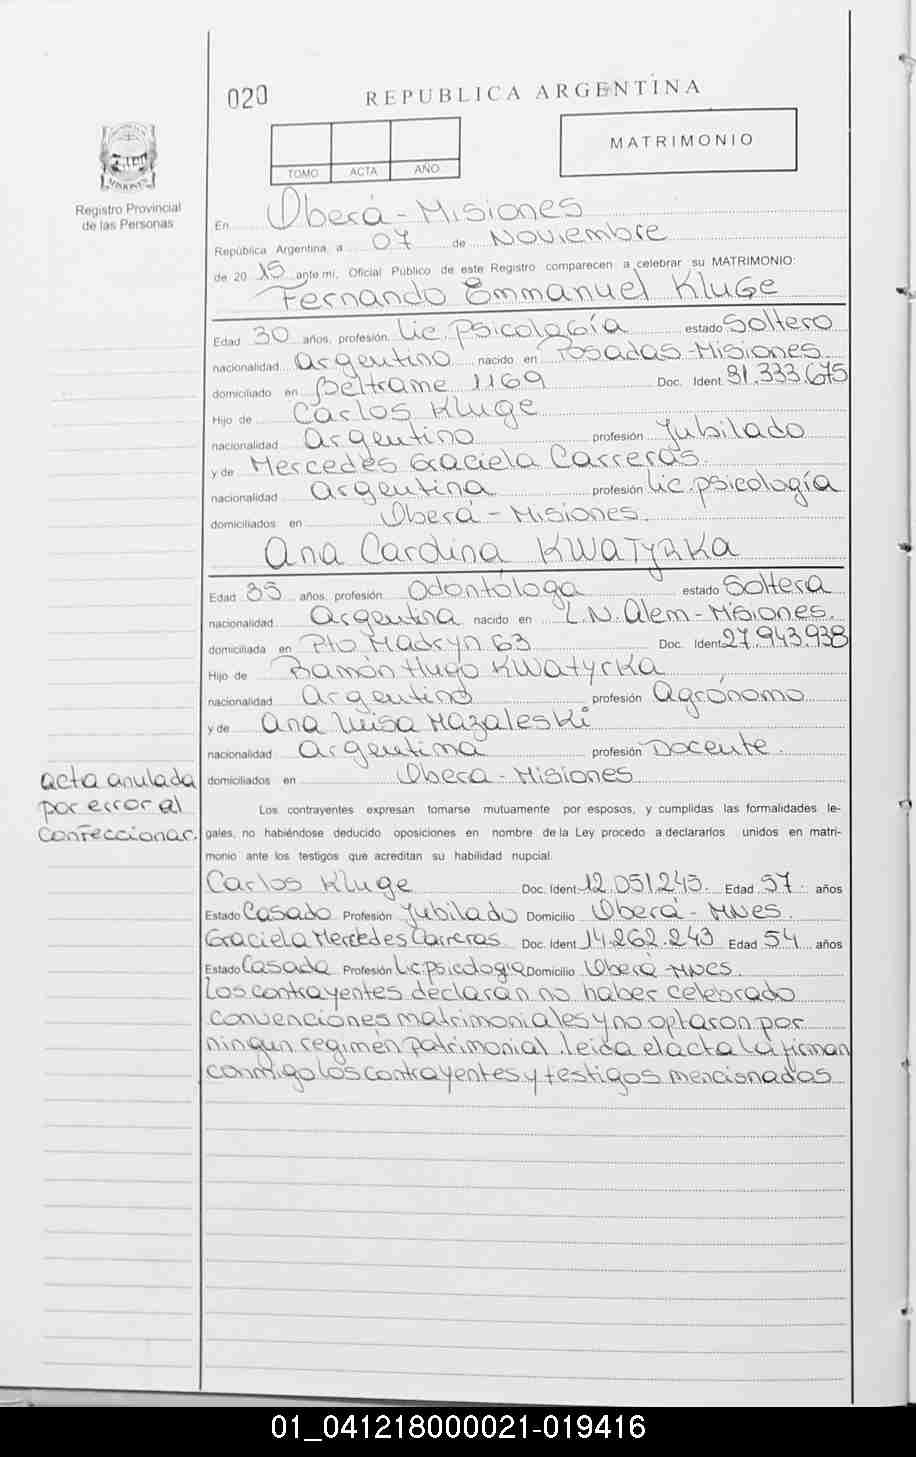 020
REPUBLICA ARGENTINA
TOMO ACTA AÑO
MATRIMONIO
MISIONES
Registro Provincial
de las Personas
En Oberá - Misiones
República Argentina, a 07 de Noviembre
de 20 15 ante mi, Oficial Público de este Registro comparecen a celebrar su MATRIMONIO:
Fernando Emmanuel Kluge
Edad 30 años, profesión Lic. Psicología estado Soltero
nacionalidad argentino nacido en Posadas - Misiones
domiciliado en Beltrame 1169 Doc. Ident. 31.333.675
Hijo de Carlos Kluge
nacionalidad argentino profesión Jubilado
y de Mercedes Graciela Carreras.
nacionalidad argentina profesión Lic. psicología
domiciliados en Oberá - Misiones.
Ana Carolina KWATYRKA
Edad 35 años, profesión Odontóloga estado Soltera
nacionalidad Argentina nacido en L.N. Alem - Misiones.
domiciliada en Pto Madryn 63 Doc. Ident 27.943.938
Hijo de Ramón Hugo KWatyrKa
nacionalidad Argentino profesión Agrónomo
y de Ana Luisa Mazaleski
nacionalidad Argentina profesión Docente.
domiciliados en Obera - Misiones
acta anulada
por error al
confeccionar.
Los contrayentes expresan tomarse mutuamente por esposos, y cumplidas las formalidades le-
gales, no habiéndose deducido oposiciones en nombre de la Ley procedo a declararlos unidos en matri-
monio ante los testigos que acreditan su habilidad nupcial.
Carlos Kluge Doc. Ident 12.051.245. Edad 57. años
Estado Casado Profesión Jubilado Domicilio Oberá - MNES.
Graciela Mercedes Carreras Doc. Ident 14.262.243 Edad 54 años
Estado Casada Profesión Lic. psicología Domicilio Oberá - MNES.
Los contrayentes declaran no haber celebrado
convenciones matrimoniales y no optaron por
ningun regimén patrimonial. leida el acta la firman
conmigo los contrayentes y testigos mencionados
01_041218000021-019416